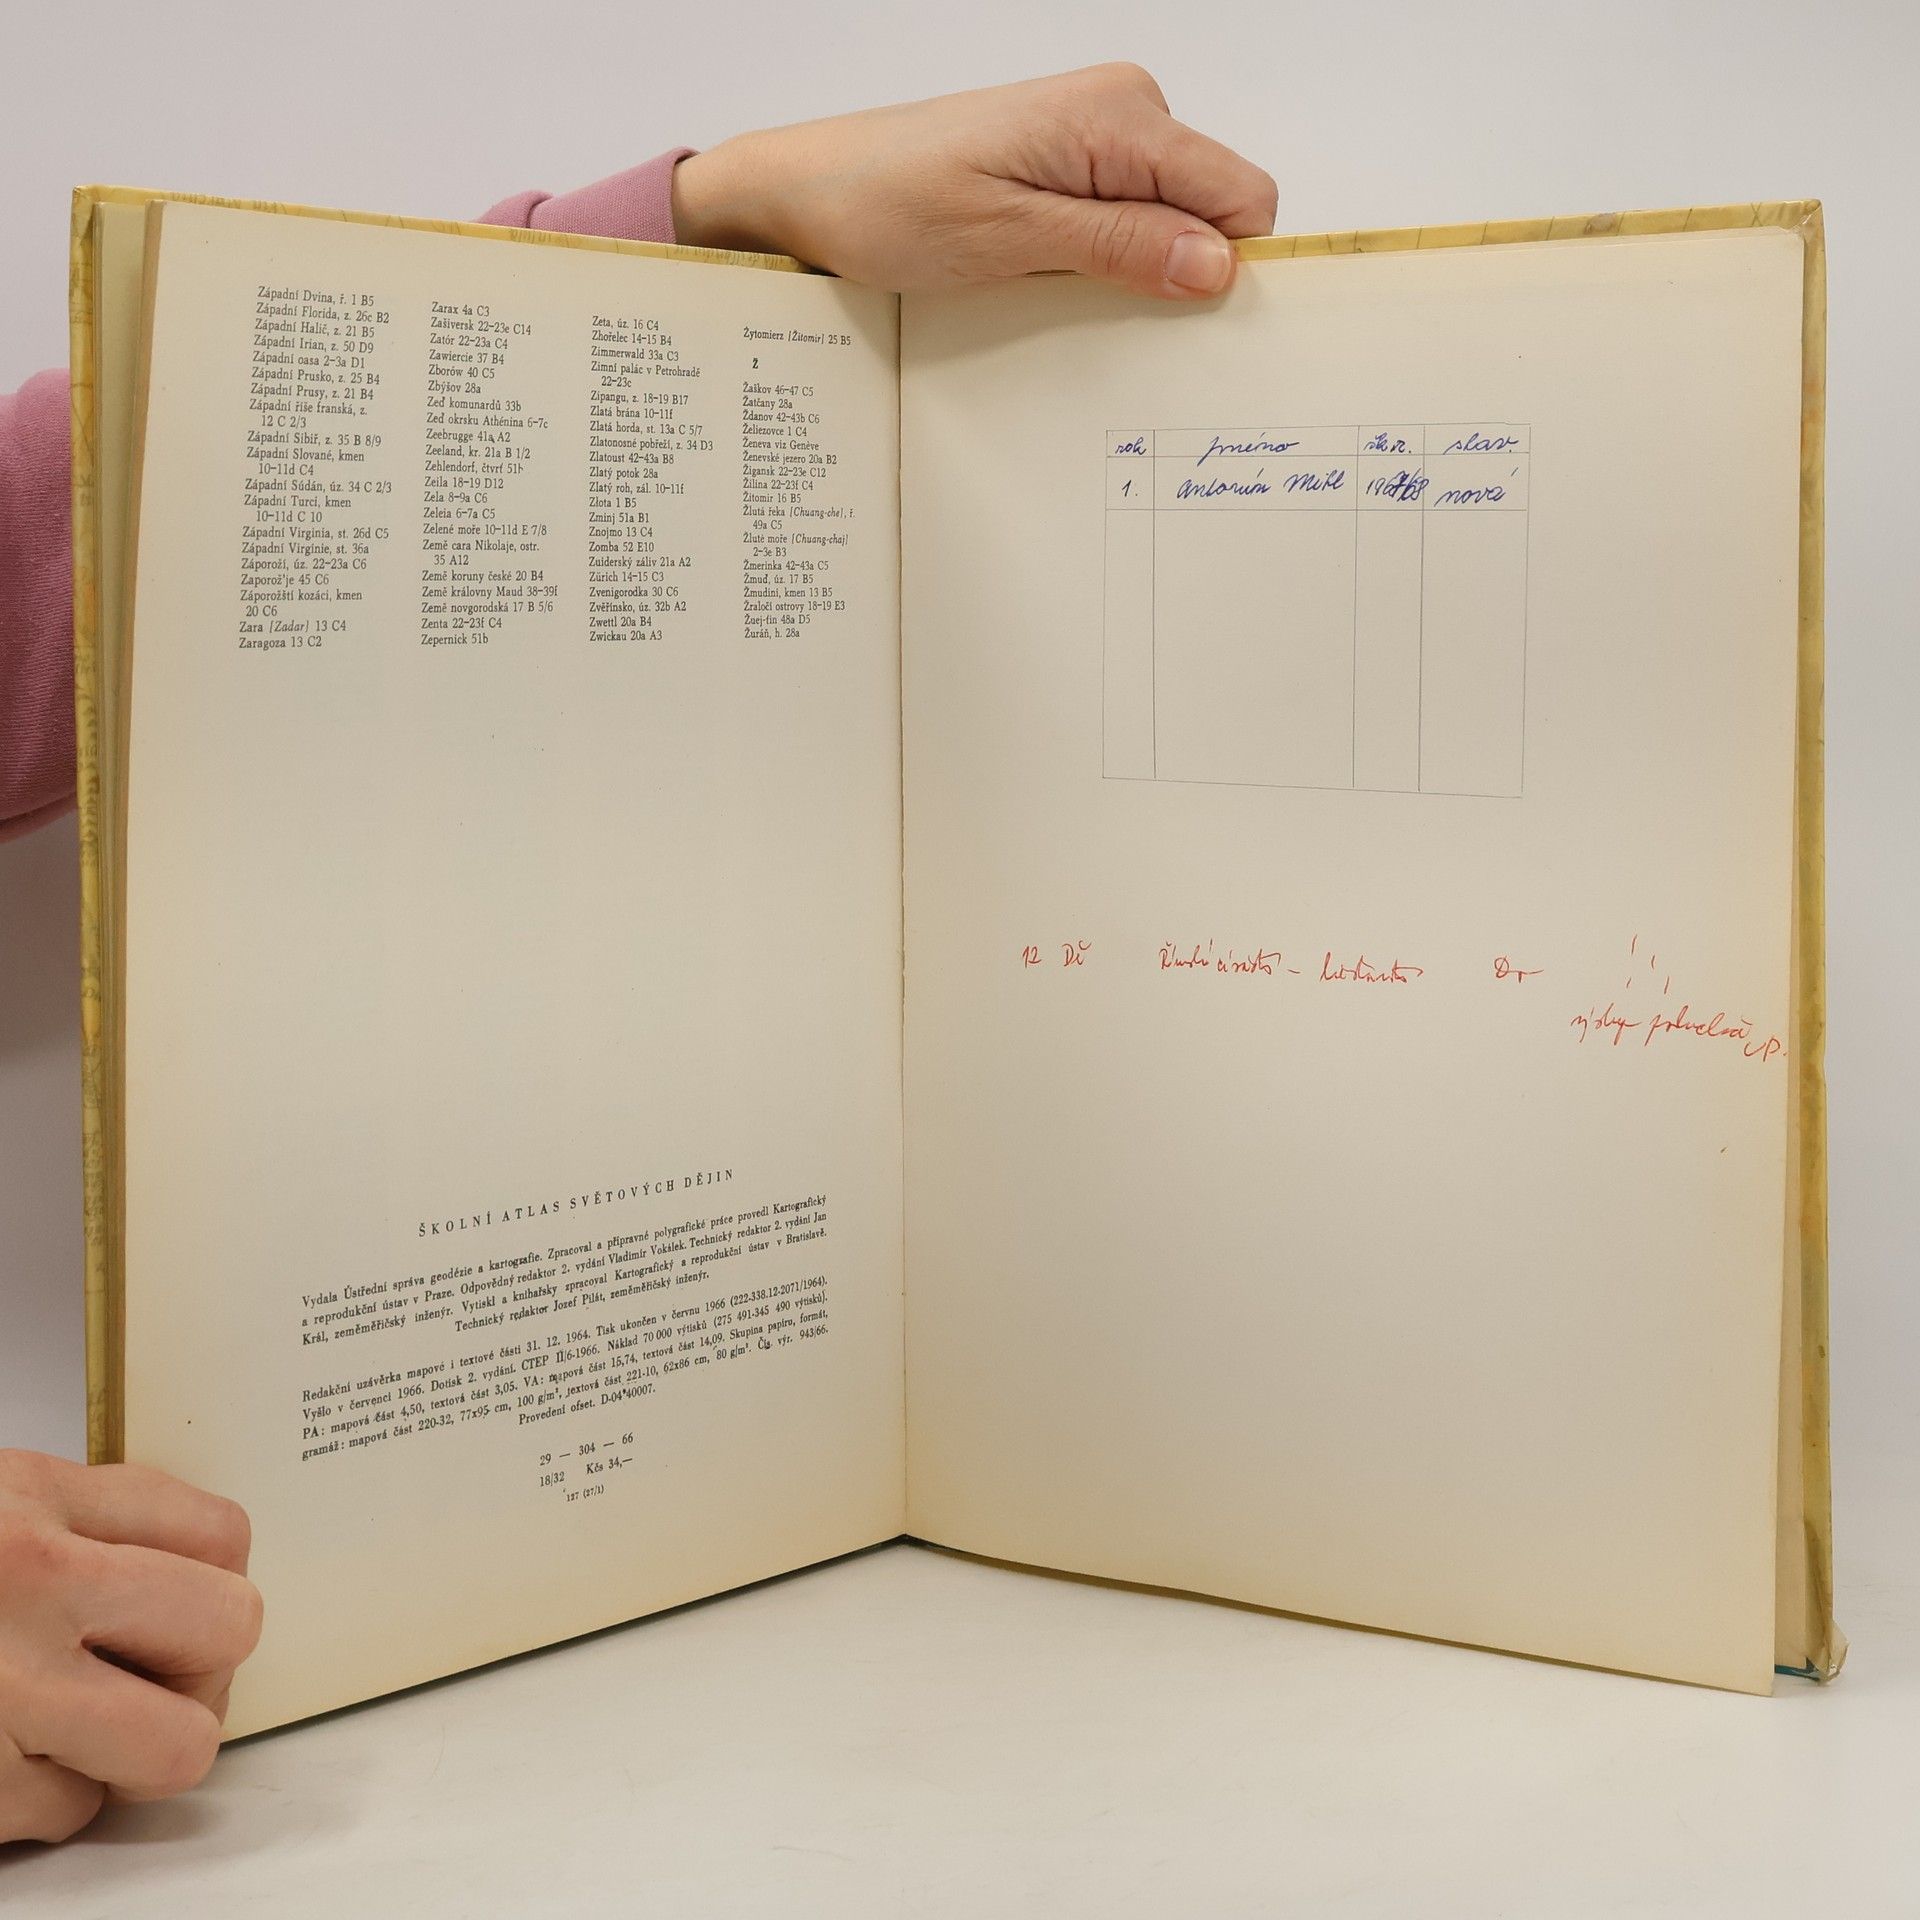 Západní Dvina, ř. 1 B5
Západní Florida, z. 26c B2
Západní Halič, z. 21 B5
Západní Irian, z. 50 D9
Západní oasa 2–3a D1
Západní Prusko, z. 25 B4
Západní Prusy, z. 21 B4
Západní říše franská, z.
12 C 2/3
Západní Sibiř, z. 35 B 8/9
Západní Slované, kmen
10–11d C4
Západní Súdán, úz. 34 C 2/3
Západní Turci, kmen
10–11d C 10
Západní Virginia, st. 26d C5
Západní Virginie, st. 36a
Záporoží, úz. 22–23a C6
Zaporož'je 45 C6
Záporožští kozáci, kmen
20 C6
Zara [Zadar] 13 C4
Zaragoza 13 C2
Zarax 4a C3
Zašiversk 22–23e C14
Zatór 22–23a C4
Zawiercie 37 B4
Zborów 40 C5
Zbýšov 28a
Zeď komunardů 33b
Zeď okrsku Athénina 6–7c
Zeebrugge 41a A2
Zeeland, kr. 21a B 1/2
Zehlendorf, čtvrť 51b
Zeila 18–19 D12
Zela 8–9a C6
Zeleia 6–7a C5
Zelené moře 10–11d E 7/8
Země cara Nikolaje, ostr.
35 A12
Země koruny české 20 B4
Země královny Maud 38–39f
Země novgorodská 17 B 5/6
Zenta 22–23f C4
Zepernick 51b
Zeta, úz. 16 C4
Zhořelec 14–15 B4
Zimmerwald 33a C3
Zimní palác v Petrohradě
22–23c
Zipangu, z. 18–19 B17
Zlatá brána 10–11f
Zlatá horda, st. 13a C 5/7
Zlatonosné pobřeží, z. 34 D3
Zlatoust 42–43a B8
Zlatý potok 28a
Zlatý roh, zál. 10–11f
Złota 1 B5
Zminj 51a B1
Znojmo 13 C4
Zomba 52 E10
Zuiderský záliv 21a A2
Zürich 14–15 C3
Zvenigorodka 30 C6
Zvěřínsko, úz. 32b A2
Zwettl 20a B4
Zwickau 20a A3
Żytomierz [Žitomir] 25 B5
Ž
Žaškov 46–47 C5
Žatčany 28a
Ždanov 42–43b C6
Želiezovce 1 C4
Ženeva viz Genève
Ženevské jezero 20a B2
Žigansk 22–23e C12
Žilina 22–23f C4
Žitomir 16 B5
Žlutá řeka [Chuang-che], ř.
49a C5
Žluté moře [Chuang-chaj]
2–3e B3
Žmerinka 42–43a C5
Žmuď, úz. 17 B5
Žmudini, kmen 13 B5
Žraločí ostrovy 18–19 E3
Žuej-fin 48a D5
Žuráň, h. 28a
ŠKOLNÍ ATLAS SVĚTOVÝCH DĚJIN
Vydala Ústřední správa geodézie a kartografie. Zpracoval a přípravné polygrafické práce provedl Kartografický
a reprodukční ústav v Praze. Odpovědný redaktor 2. vydání Vladimír Vokálek. Technický redaktor 2. vydání Jan
Král, zeměměřičský inženýr. Vytiskl a knihařsky zpracoval Kartografický a reprodukční ústav v Bratislavě.
Technický redaktor Jozef Pilát, zeměměřičský inženýr.
Redakční uzávěrka mapové i textové části 31. 12. 1964. Tisk ukončen v červnu 1966 (222-338.12-2071/1964).
Vyšlo v červenci 1966. Dotisk 2. vydání. CTEP II/6-1966. Náklad 70 000 výtisků (275 491-345 490 výtisků).
PA: mapová část 4,50, textová část 3,05. VA: mapová část 15,74, textová část 14,09. Skupina papíru, formát,
gramáž: mapová část 220-32, 77x95 cm, 100 g/m², textová část 221-10, 62x86 cm, 80 g/m². Čís. výr. 943/66.
Provedení ofset. D-04*40007.
29 — 304 — 66
18/32 Kčs 34,—
127 (27/1)
rok jméno šk. r. stav.
1. Antonín Mikl nová
12 Dě